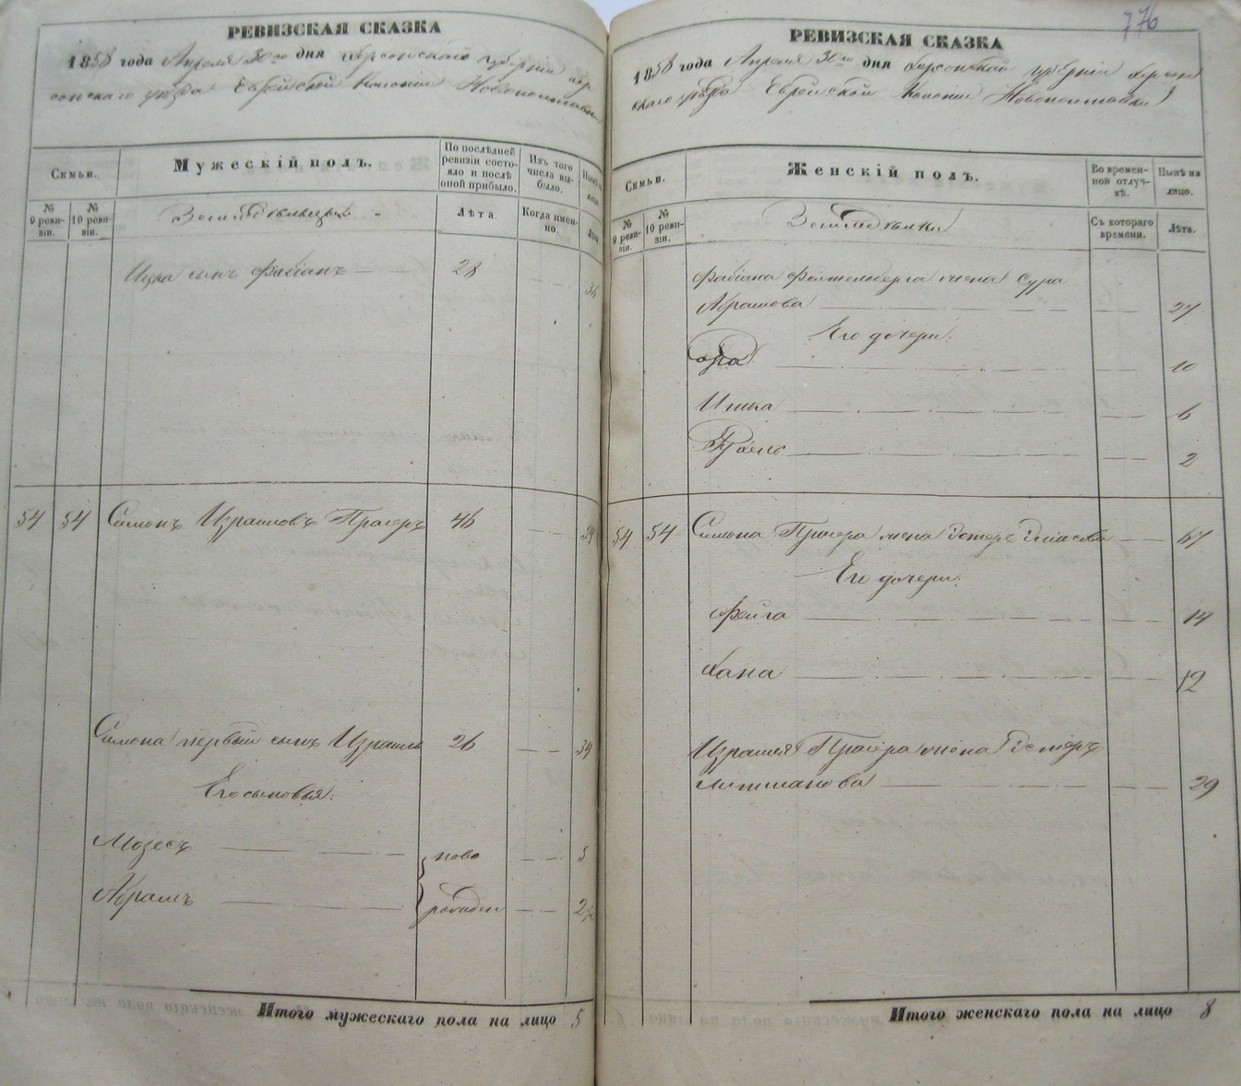 776
РЕВИЗСКАЯ СКАЗКА
1858 года Апреля 30го дня Херсонской губернии Хер
сонскаго уезда Еврейской колонии Новополтавки
Семьи.
Мужескій полъ.
По послѣдней ревизіи состояло и послѣ оной прибыло.
Изъ того числа выбыло.
№ 9 ревизіи.
№ 10 ревизіи.
Лѣта.
Когда именно.
Земледельцы
Ицка сынъ Фабіанъ 28
54 54 Симонъ Израилевъ Прагеръ 46
Симона первый сынъ Израиль 26 34
Его сыновья:
Мозесъ ново 5
Абрамъ рожден 2
Итого мужескаго пола на лицо 5
РЕВИЗСКАЯ СКАЗКА
1858 года Апреля 30го дня Херсонской губернии Херсон
скаго уезда Еврейской колонии Новополтавки
Семьи.
Женскій полъ.
Во временной отлучкѣ.
Нынѣ на лицо.
№ 9 ревизіи.
№ 10 ревизіи.
Съ котораго времени.
Лѣта.
Фабіана жена Сура
Абрамова 27
Его дочери:
10
Ицка 6
2
54 54 Симона Прагера жена Эстеръ 67
Его дочери:
Фейга 14
Хана 12
Израиля Прагера жена Эстеръ
Литманова 29
Итого женскаго пола на лицо 8